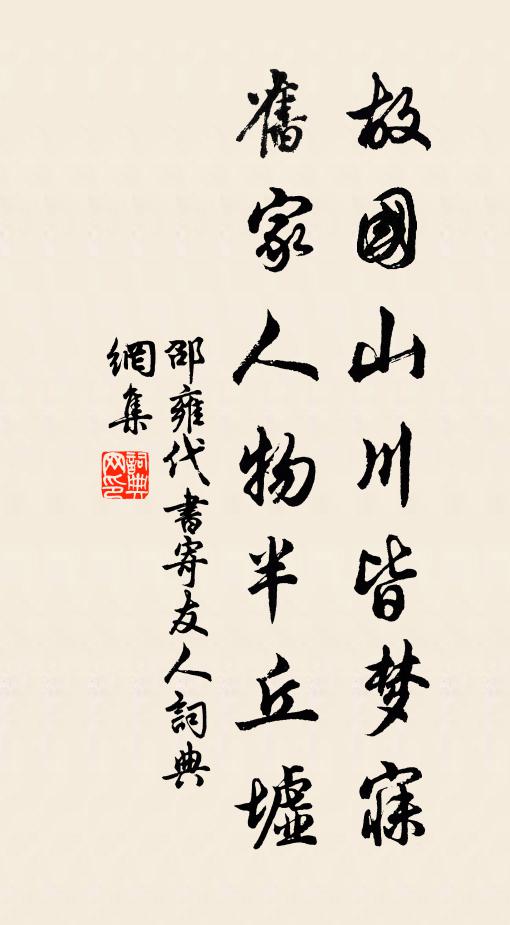 故國山川皆梦寐
舊家人物半丘墟
邵雍代書寄友人詞典
網集
詞典
网印